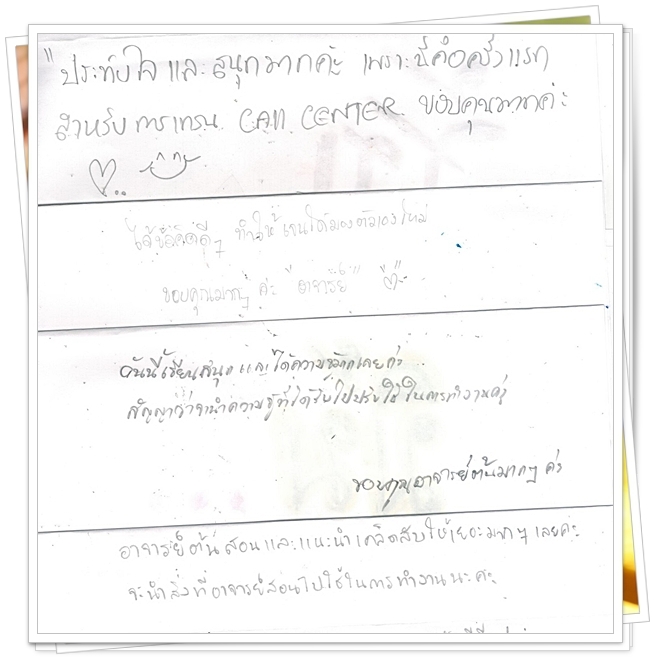 "ประทับใจ และ สนุกมากค่ะ เพราะนี่คือครั้งแรก
สำหรับการเทรน CALL CENTER ขอบคุณมากค่ะ
ได้ข้อคิดดีๆ ทำให้เจนได้มองตัวเองใหม่
ขอบคุณมากๆ ค่ะ "อาจารย์"
วันนี้เรียนสนุก และได้ความรู้มากเลยค่ะ
สัญญาว่าจะนำความรู้ที่ได้รับไปปรับใช้ในการทำงานค่ะ
ขอบคุณอาจารย์ต้นมากๆ ค่ะ
อาจารย์ต้นสอนและแนะนำเคล็ดลับให้เยอะมากๆ เลยค่ะ
จะนำสิ่งที่อาจารย์สอนไปใช้ในการทำงานนะคะ